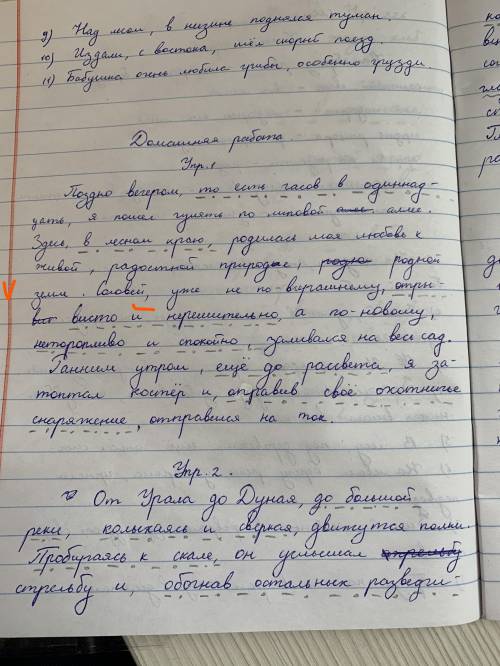 9) Над мхом, в низине поднялся туман.
10) Издали, с востока, шёл скорый поезд.
11) Бабушка очень любила грибы, особенно грузди.
Домашняя работа
Упр. 1
Поздно вечером, то есть часов в одиннад-
цать, я пошел гулять по липовой аллее.
Здесь, в лесном краю, родилась моя любовь к
живой, радостной природе, родной
земле. Соловей, уже не по-вчерашнему, отры-
висто и нерешительно, а по-новому,
неторопливо и спокойно, заливался на весь сад.
Ранним утром, ещё до рассвета, я за-
топтал костёр и, оправив своё охотничье
снаряжение, отправился на ток.
Упр. 2.
От Урала до Дуная, до большой
реки, колыхаясь и сверкая, движутся полки.
Пробираясь к скале, он услышал стрельбу
стрельбу и, обогнав остальных разведчи-